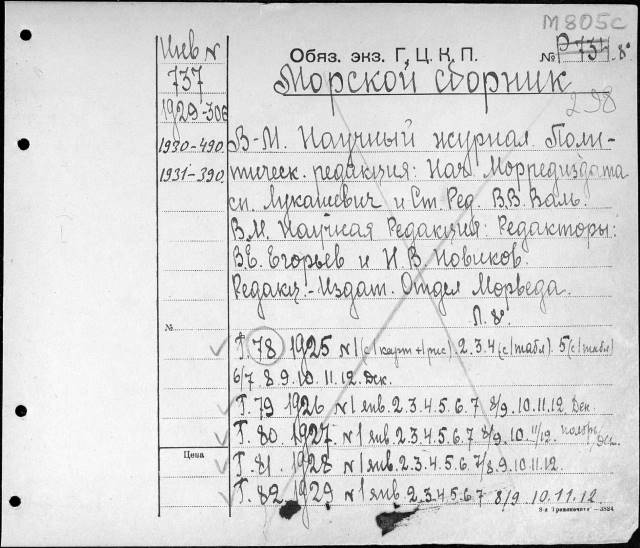 М805с
Инв N
737
1929-306
1930-490
1931-390
Обяз. экз. Г. Ц. К. П.
№ Р 731 8°
Морской сборник
298
В-М. Научный журнал. Поли-
тическ. редакция: Нач. Морредиздата
сп. Лукашевич и Ст. Ред. В.В. Валь.
В.М. Научная Редакция: Редакторы:
В.Е. Егорьев и Н.В. Новиков.
Редакц.-Издат. Отдел Морведа.
Л. 8°.
№
Т. 78 1925 N 1 (с/карт+рис). 2. 3. 4 (с/табл). 5 (с/табл)
6/7 8. 9. 10. 11. 12. Дек.
Т. 79 1926 N 1 янв. 2. 3. 4. 5. 6. 7 8/9. 10. 11. 12. Дек.
Т. 80. 1927. N 1 янв. 2. 3. 4. 5. 6. 7 8/9. 10. 11/12. ноябрь/Дек.
Цена
Т. 81. 1928 N 1 янв. 2. 3. 4. 5. 6. 7/8. 9. 10. 11. 12.
Т. 82 1929 N 1 янв. 2. 3. 4. 5. 6. 7 8/9 10. 11. 12.
3884